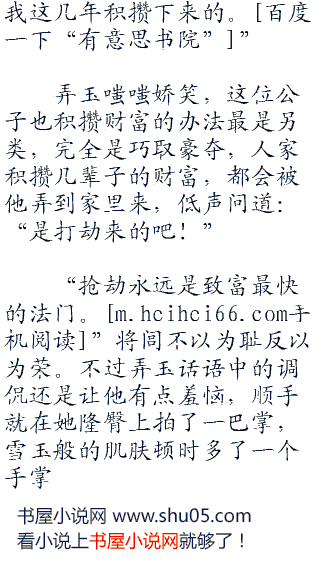 我这几年积攒下来的。[百度
一下“有意思书院”]”
弄玉嗤嗤娇笑，这位公
子也积攒财富的办法最是另
类，完全是巧取豪夺，人家
积攒几辈子的财富，都会被
他弄到家里来，低声问道：
“是打劫来的吧！”
“抢劫永远是致富最快
的法门。[m.hcihci66.com手
机阅读]”将闾不以为耻反以
为荣。不过弄玉话语中的调
侃还是让他有点羞恼，顺手
就在她隆臀上拍了一巴掌，
雪玉般的肌肤顿时多了一个
手掌
书屋小说网 www.shu05.com
看小说上书屋小说网就够了！